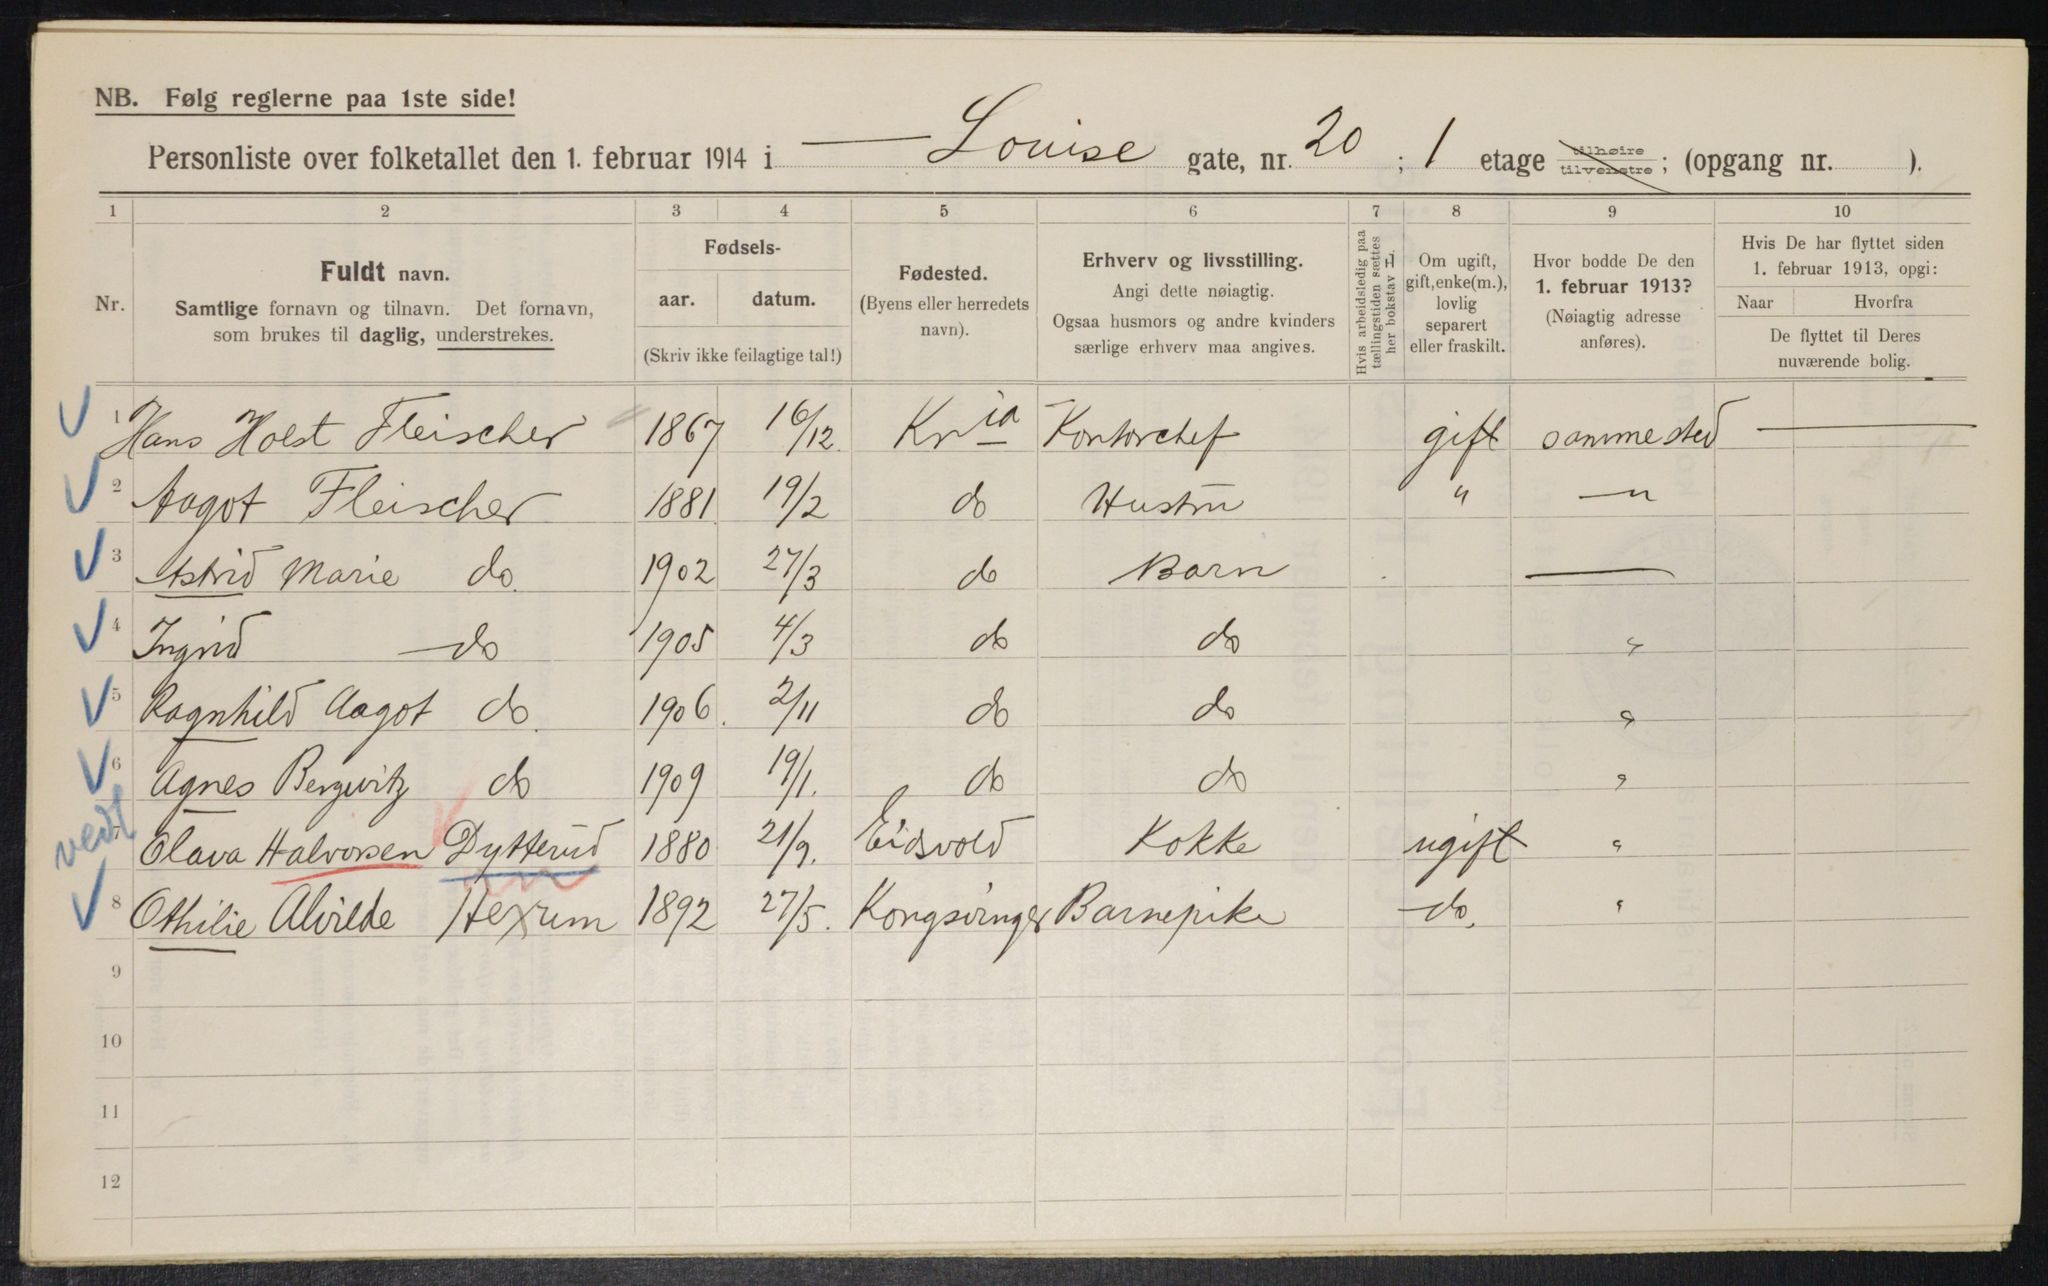 NB. Følg reglerne paa 1ste side!
Personliste over folketallet den 1. februar 1914 i — Louise gate, nr. 20 ; 1 etage tilhøire tilvenstre ; (opgang nr. ).
1 2 3 4 5 6 7 8 9 10
Nr.
Fuldt navn.
Samtlige fornavn og tilnavn. Det fornavn,
som brukes til daglig, understrekes.
Fødsels-
aar. datum.
(Skriv ikke feilagtige tal!)
Fødested.
(Byens eller herredets
navn).
Erhverv og livsstilling.
Angi dette nøiagtig.
Ogsaa husmors og andre kvinders
særlige erhverv maa angives.
Hvis arbeidsledig paa
tællingstiden sættes
her bokstav L.
Om ugift,
gift, enke(m.),
lovlig
separert
eller fraskilt.
Hvor bodde De den
1. februar 1913?
(Nøiagtig adresse
anføres).
Hvis De har flyttet siden
1. februar 1913, opgi:
Naar Hvorfra
De flyttet til Deres
nuværende bolig.
1 Hans Holst Fleischer 1867 16/12. Kria Kontorchef gift sammested —
2 Aagot Fleischer 1881 19/2 do Hustru " — "
3 Astrid Marie do. 1902 27/3 do Barn —
4 Ingrid — do 1905 4/3 do do "
5 Ragnhild Aagot do. 1906. 2/11 do do "
6 Agnes Bergwitz do 1909 19/1. do do "
vedl
7 Olava Halvorsen Dytterud 1880 21/9. Eidsvold Kokke ugift "
8 Othilie Alvilde Hexum 1892 27/5. Kongsvinger Barnepike do. "
9
10
11
12